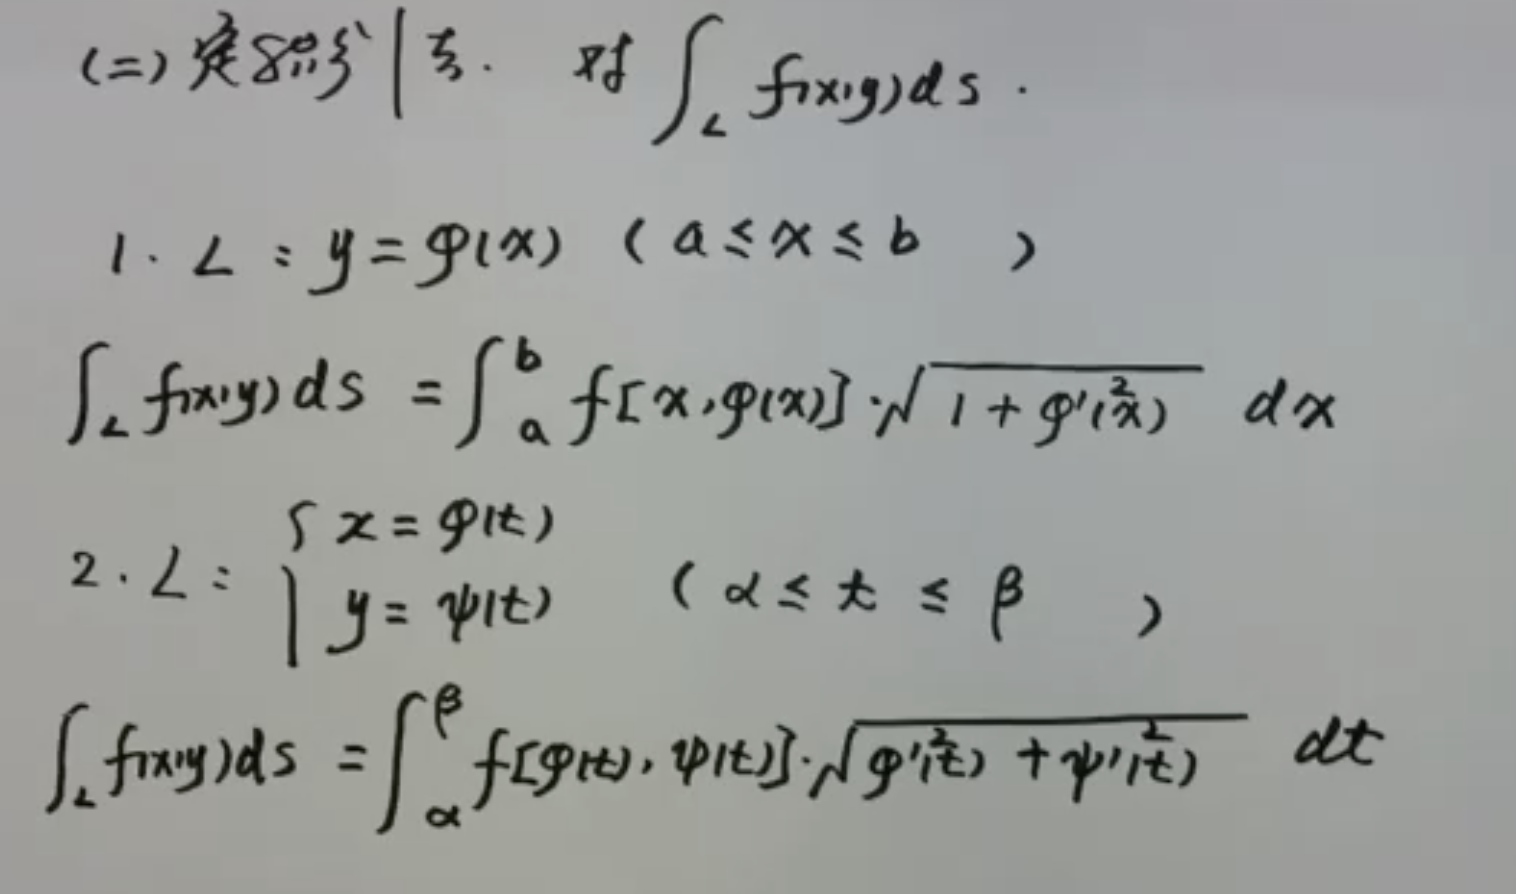 (二) 定积分法. 对 ∫_L f(x,y)ds.
1. L: y=φ(x) (a≤x≤b )
∫_L f(x,y)ds = ∫_a^b f[x,φ(x)]·√(1+φ'²(x)) dx
2. L: { x=φ(t)
y=ψ(t) (α≤t≤β )
∫_L f(x,y)ds = ∫_α^β f[φ(t),ψ(t)]·√(φ'²(t)+ψ'²(t)) dt